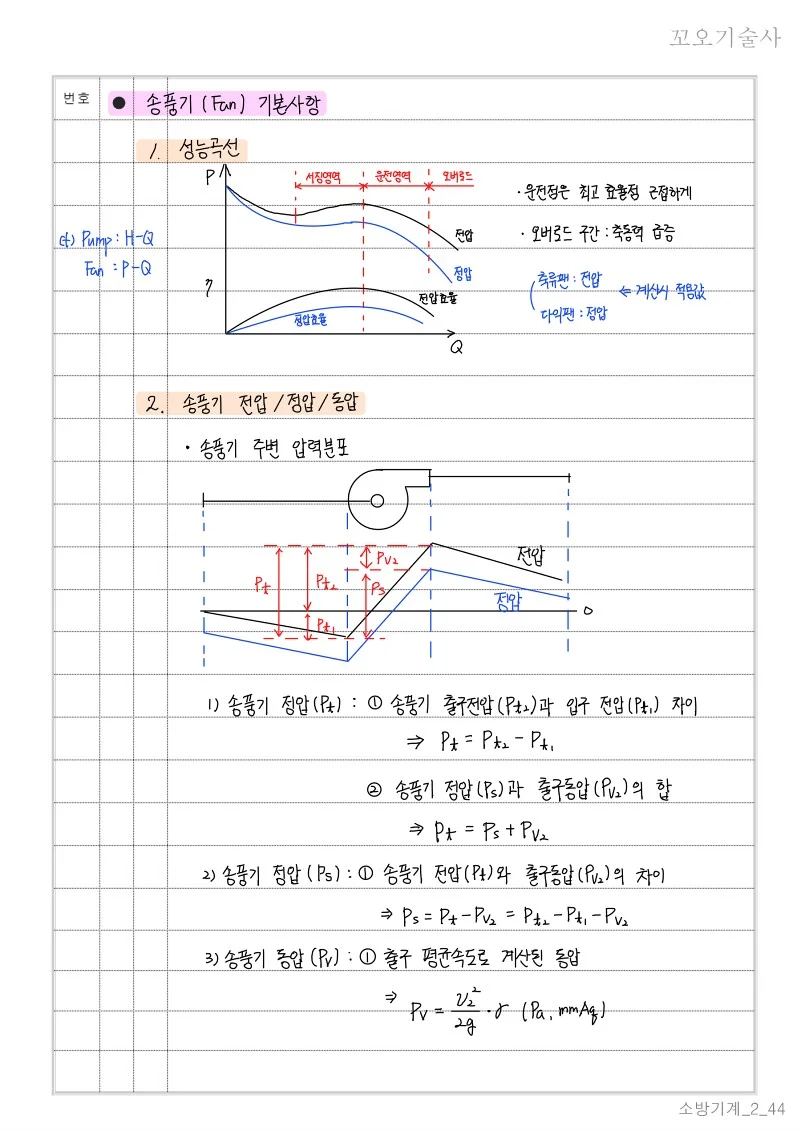 꼬오기술사
번호
● 송풍기 (Fan) 기본사항
1. 성능곡선
P
서징영역
운전영역
오버로드
전압
정압
η
전압효율
정압효율
Q
cf) Pump : H-Q
Fan : P-Q
· 운전점은 최고 효율점 근접하게
· 오버로드 구간 : 축동력 급증
축류팬 : 전압
다익팬 : 정압
⇐ 계산시 적용값
2. 송풍기 전압/정압/동압
· 송풍기 주변 압력분포
Pt
Pt2
Pt1
PV2
Ps
전압
정압
0
1) 송풍기 정압(Pt) : ① 송풍기 출구전압(Pt2)과 입구 전압(Pt1) 차이
⇒ Pt = Pt2 - Pt1
② 송풍기 정압(Ps)과 출구동압(PV2)의 합
⇒ Pt = Ps + PV2
2) 송풍기 정압(Ps) : ① 송풍기 전압(Pt)와 출구동압(PV2)의 차이
⇒ Ps = Pt - PV2 = Pt2 - Pt1 - PV2
3) 송풍기 동압(PV) : ① 출구 평균속도로 계산된 동압
⇒ PV = v2²/2g · γ (Pa, mmAq)
소방기계_2_44